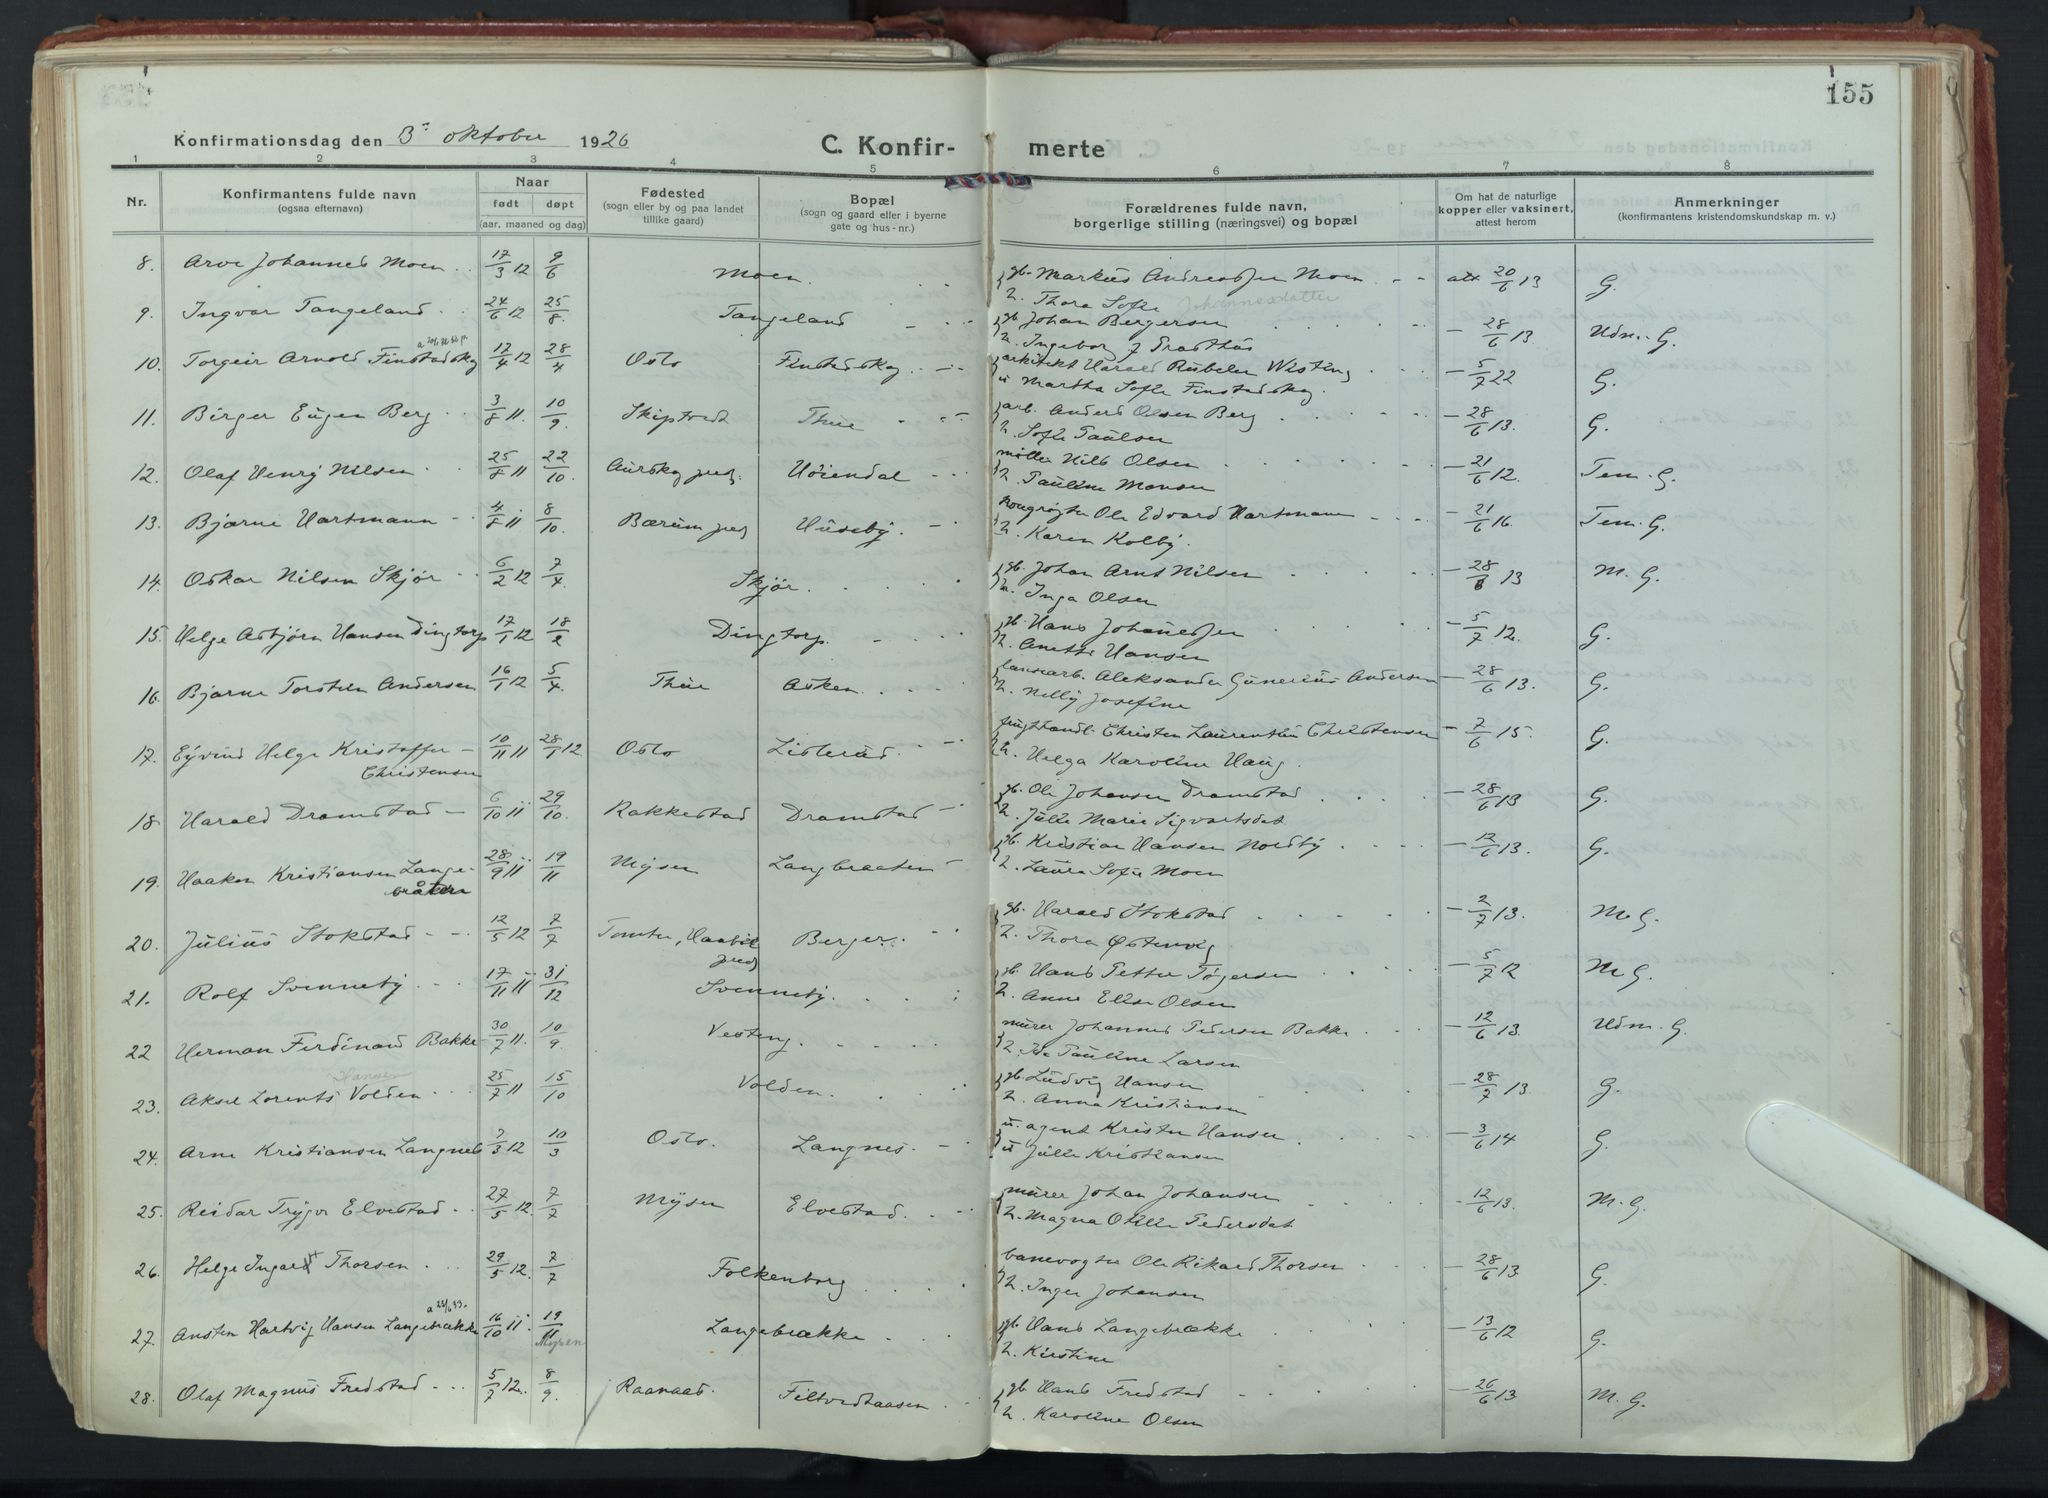 155
Konfirmationsdag den 3. oktober 1926
C. Konfir- merte
1 2 3 4 5 6 7 8
Nr.
Konfirmantens fulde navn
(ogsaa efternavn)
Naar
født døpt
(aar, maaned og dag)
Fødested
(sogn eller by og paa landet
tillike gaard)
Bopæl
(sogn og gaard eller i byerne
gate og hus-nr.)
Forældrenes fulde navn,
borgerlige stilling (næringsvei) og bopæl
Om hat de naturlige
kopper eller vaksinert,
attest herom
Anmerkninger
(konfirmantens kristendomskundskap m. v.)
8. Arve Johannes Moen 17/3 12 9/6 Moen gb. Markus Andreassen Moen att 20/6 13 G.
Thora Sofie Johannesdatter
9. Ingvar Tangeland 24/6 12 25/8 Tangeland gb. Johan Bergersen - 28/6 13 Udm. G.
Ingeborg J.
10. Torgeir Arnold Finstadskog 17/4 12 28/4 Oslo Finstadskog arkitekt Harald Rubeler Wisting - 5/7 22 G.
u Martha Sofie Finstadskog
11. Birger Eugen Berg 3/8 11 10/9 Skiptvedt Thue arb. Anders Olsen Berg - 28/6 13. G.
Sofie Paulsen
12. Olaf Henry Nilsen 25/8 11 22/10 Aurskog Høiendal møller Nils Olsen - 21/6 12. Tem. G.
Pauline Monsen
13. Bjarne Hartmann 4/8 11 8/10 Bærum Huseby Ole Edvard Hartmann - 21/6 16 Tem. G.
Karen Kolby.
14. Oskar Nilsen Skjør 6/2 12 7/4 Skjør gb. Johan Arnt Nilsen - 28/6 13 M. G.
Inga Olsen
15. Helge Asbjørn Hansen Dingtorp 17/1 12 18/2 Dingtorp gb. Hans Johannessen - 5/7 12. G.
Anette Hansen
16. Bjarne Torstein Andersen 16/1 12 5/4 Thue Asken Aleksander Gunerius Andersen - 28/6 13. G.
Nelly Josefine
17. Eyvind Helge Kristoffer 10/11 11 28/1 12 Oslo Listerud Christen Laurentius Christensen - 7/6 15 G.
Christensen
Helga Karoline Haug.
18. Harald Dramstad 6/10 11 29/10 Rakkestad Dramstad gb. Ole Johansen Dramstad - 28/6 13 G.
Julie Marie Sigvartsdat
19. Haakon Kristiansen Lange- 28/9 11 19/11 Mysen Langbraaten gb. Kristian Hansen Nordby - 12/6 13. G.
bråten
Laura Sofie Moen
20. Julius Stokstad 12/5 12 7/7 Tomter, Haabøl Berger gb. Harald Stokstad - 2/7 13. M. G.
Thora Østenvig
21. Rolf Svenneby 17/11 11 31/12 Svenneby gb. Hans Petter Tøgersen - 5/7 12 M G.
Anne Elise Olsen
22 Herman Ferdinand Bakke 30/7 11 10/9 Vesteng murer Johannes Pedersen Bakke - 12/6 13. Udm. G.
Pauline Larsen
Hansen
23. Aksel Lorents Volden 25/7 11 15/10 Volden gb. Ludvig Hansen - 28/7 13 G.
Anna Kristiansen
24. Arne Kristiansen Langnes 7/3 12 10/3 Oslo Langnes u. agent Krister Hansen - 3/6 14 G.
u Julie Kristiansen
25. Reidar Trygve Elvestad 27/5 12. 7/7 Mysen Elvestad murer Johan Johansen - 12/6 13. M. G.
Magna Otilie Pedersdat
26. Helge Ingardt Thorsen 29/5 12. 7/7 Folkenborg banevogter Ole Rikard Thorsen - 28/6 13 G.
Inger Johansen
27. Ansten Hartvig Hansen Langebrække 16/10 11. 19/11 Langebrække gb. Hans Langebrække - 13/6 12 G.
Mysen
Kirstine
28. Olaf Magnus Fredstad 5/7 12. 8/9 Raanaas Filtvedthaasen gb. Hans Fredstad - 26/6 13 M. G.
Karoline Olsen